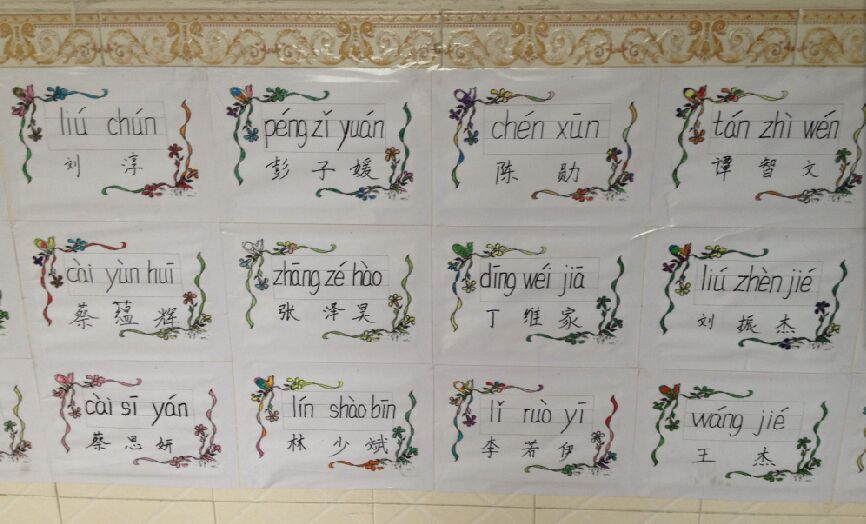 liú chún
刘 淳
péng zǐ yuán
彭 子 媛
chén xūn
陈 勋
tán zhì wén
谭 智 文
cài yùn huī
蔡 蕴 辉
zhāng zé hào
张 泽 昊
dīng wéi jiā
丁 维 家
liú zhèn jié
刘 振 杰
cài sī yán
蔡 思 妍
lín shào bīn
林 少 斌
lǐ ruò yī
李 若 伊
wáng jié
王 杰